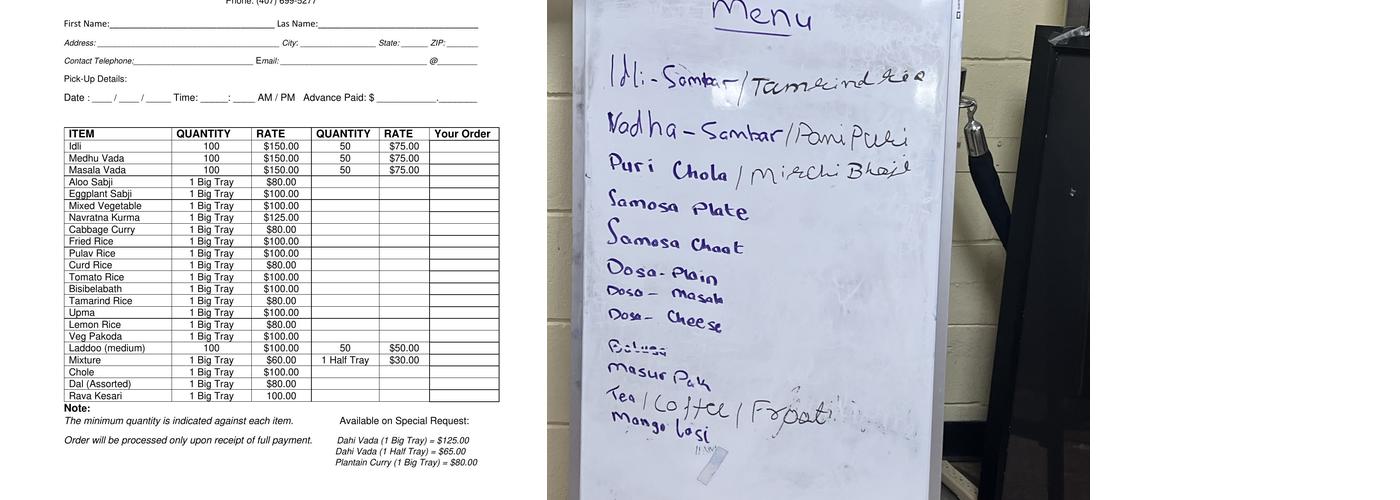 Phone: (407) 699-5277
First Name:__________ Las Name:__________
Address: __________ City: __________ State: ______ ZIP:_______
Contact Telephone:__________ Email: __________ @_________
Pick-Up Details:
Date : ____ / ____ / _____ Time: _____: ____ AM / PM Advance Paid: $ ____________._______
ITEM QUANTITY RATE QUANTITY RATE Your Order
Idli 100 $150.00 50 $75.00
Medhu Vada 100 $150.00 50 $75.00
Masala Vada 100 $150.00 50 $75.00
Aloo Sabji 1 Big Tray $80.00
Eggplant Sabji 1 Big Tray $100.00
Mixed Vegetable 1 Big Tray $100.00
Navratna Kurma 1 Big Tray $125.00
Cabbage Curry 1 Big Tray $80.00
Fried Rice 1 Big Tray $100.00
Pulav Rice 1 Big Tray $100.00
Curd Rice 1 Big Tray $80.00
Tomato Rice 1 Big Tray $100.00
Bisibelabath 1 Big Tray $100.00
Tamarind Rice 1 Big Tray $80.00
Upma 1 Big Tray $100.00
Lemon Rice 1 Big Tray $80.00
Veg Pakoda 1 Big Tray $100.00
Laddoo (medium) 100 $100.00 50 $50.00
Mixture 1 Big Tray $60.00 1 Half Tray $30.00
Chole 1 Big Tray $100.00
Dal (Assorted) 1 Big Tray $80.00
Rava Kesari 1 Big Tray 100.00
Note:
The minimum quantity is indicated against each item.
Order will be processed only upon receipt of full payment.
Available on Special Request:
Dahi Vada (1 Big Tray) = $125.00
Dahi Vada (1 Half Tray) = $65.00
Plantain Curry (1 Big Tray) = $80.00
Menu
Idli-Sambar/Tamrind
Vadha-Sambar/Pani Puri
Puri Chola/Mirchi Bhaji
Samosa Plate
Samosa Chaat
Dosa-Plain
Dosa- Masala
Dosa- Cheese
Masur Pak
Tea/Coffee/Frooti
Mango Lasi